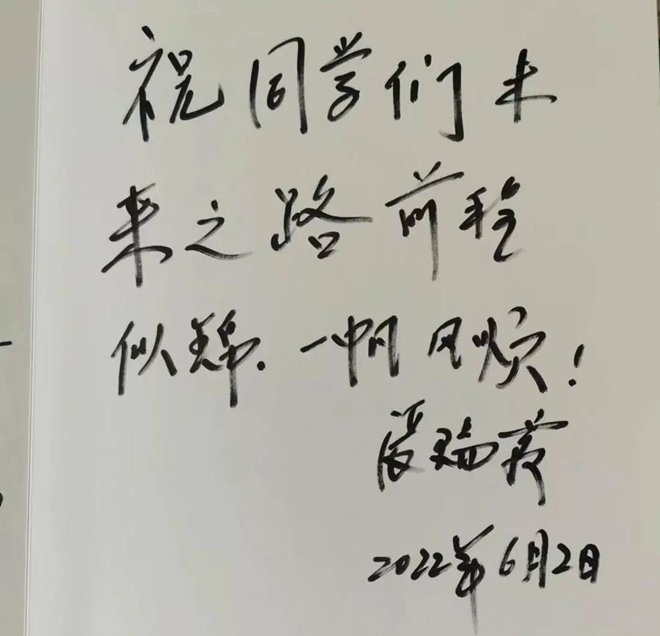 祝同学们未
来之路前程
似锦.一帆风顺!
张瑞芳
2022年6月2日